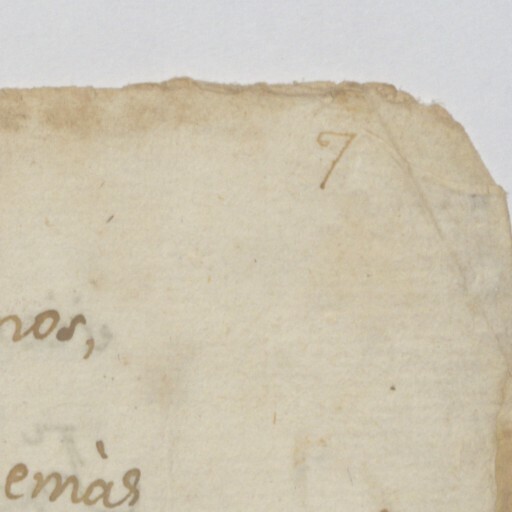 7
nos,
emàs